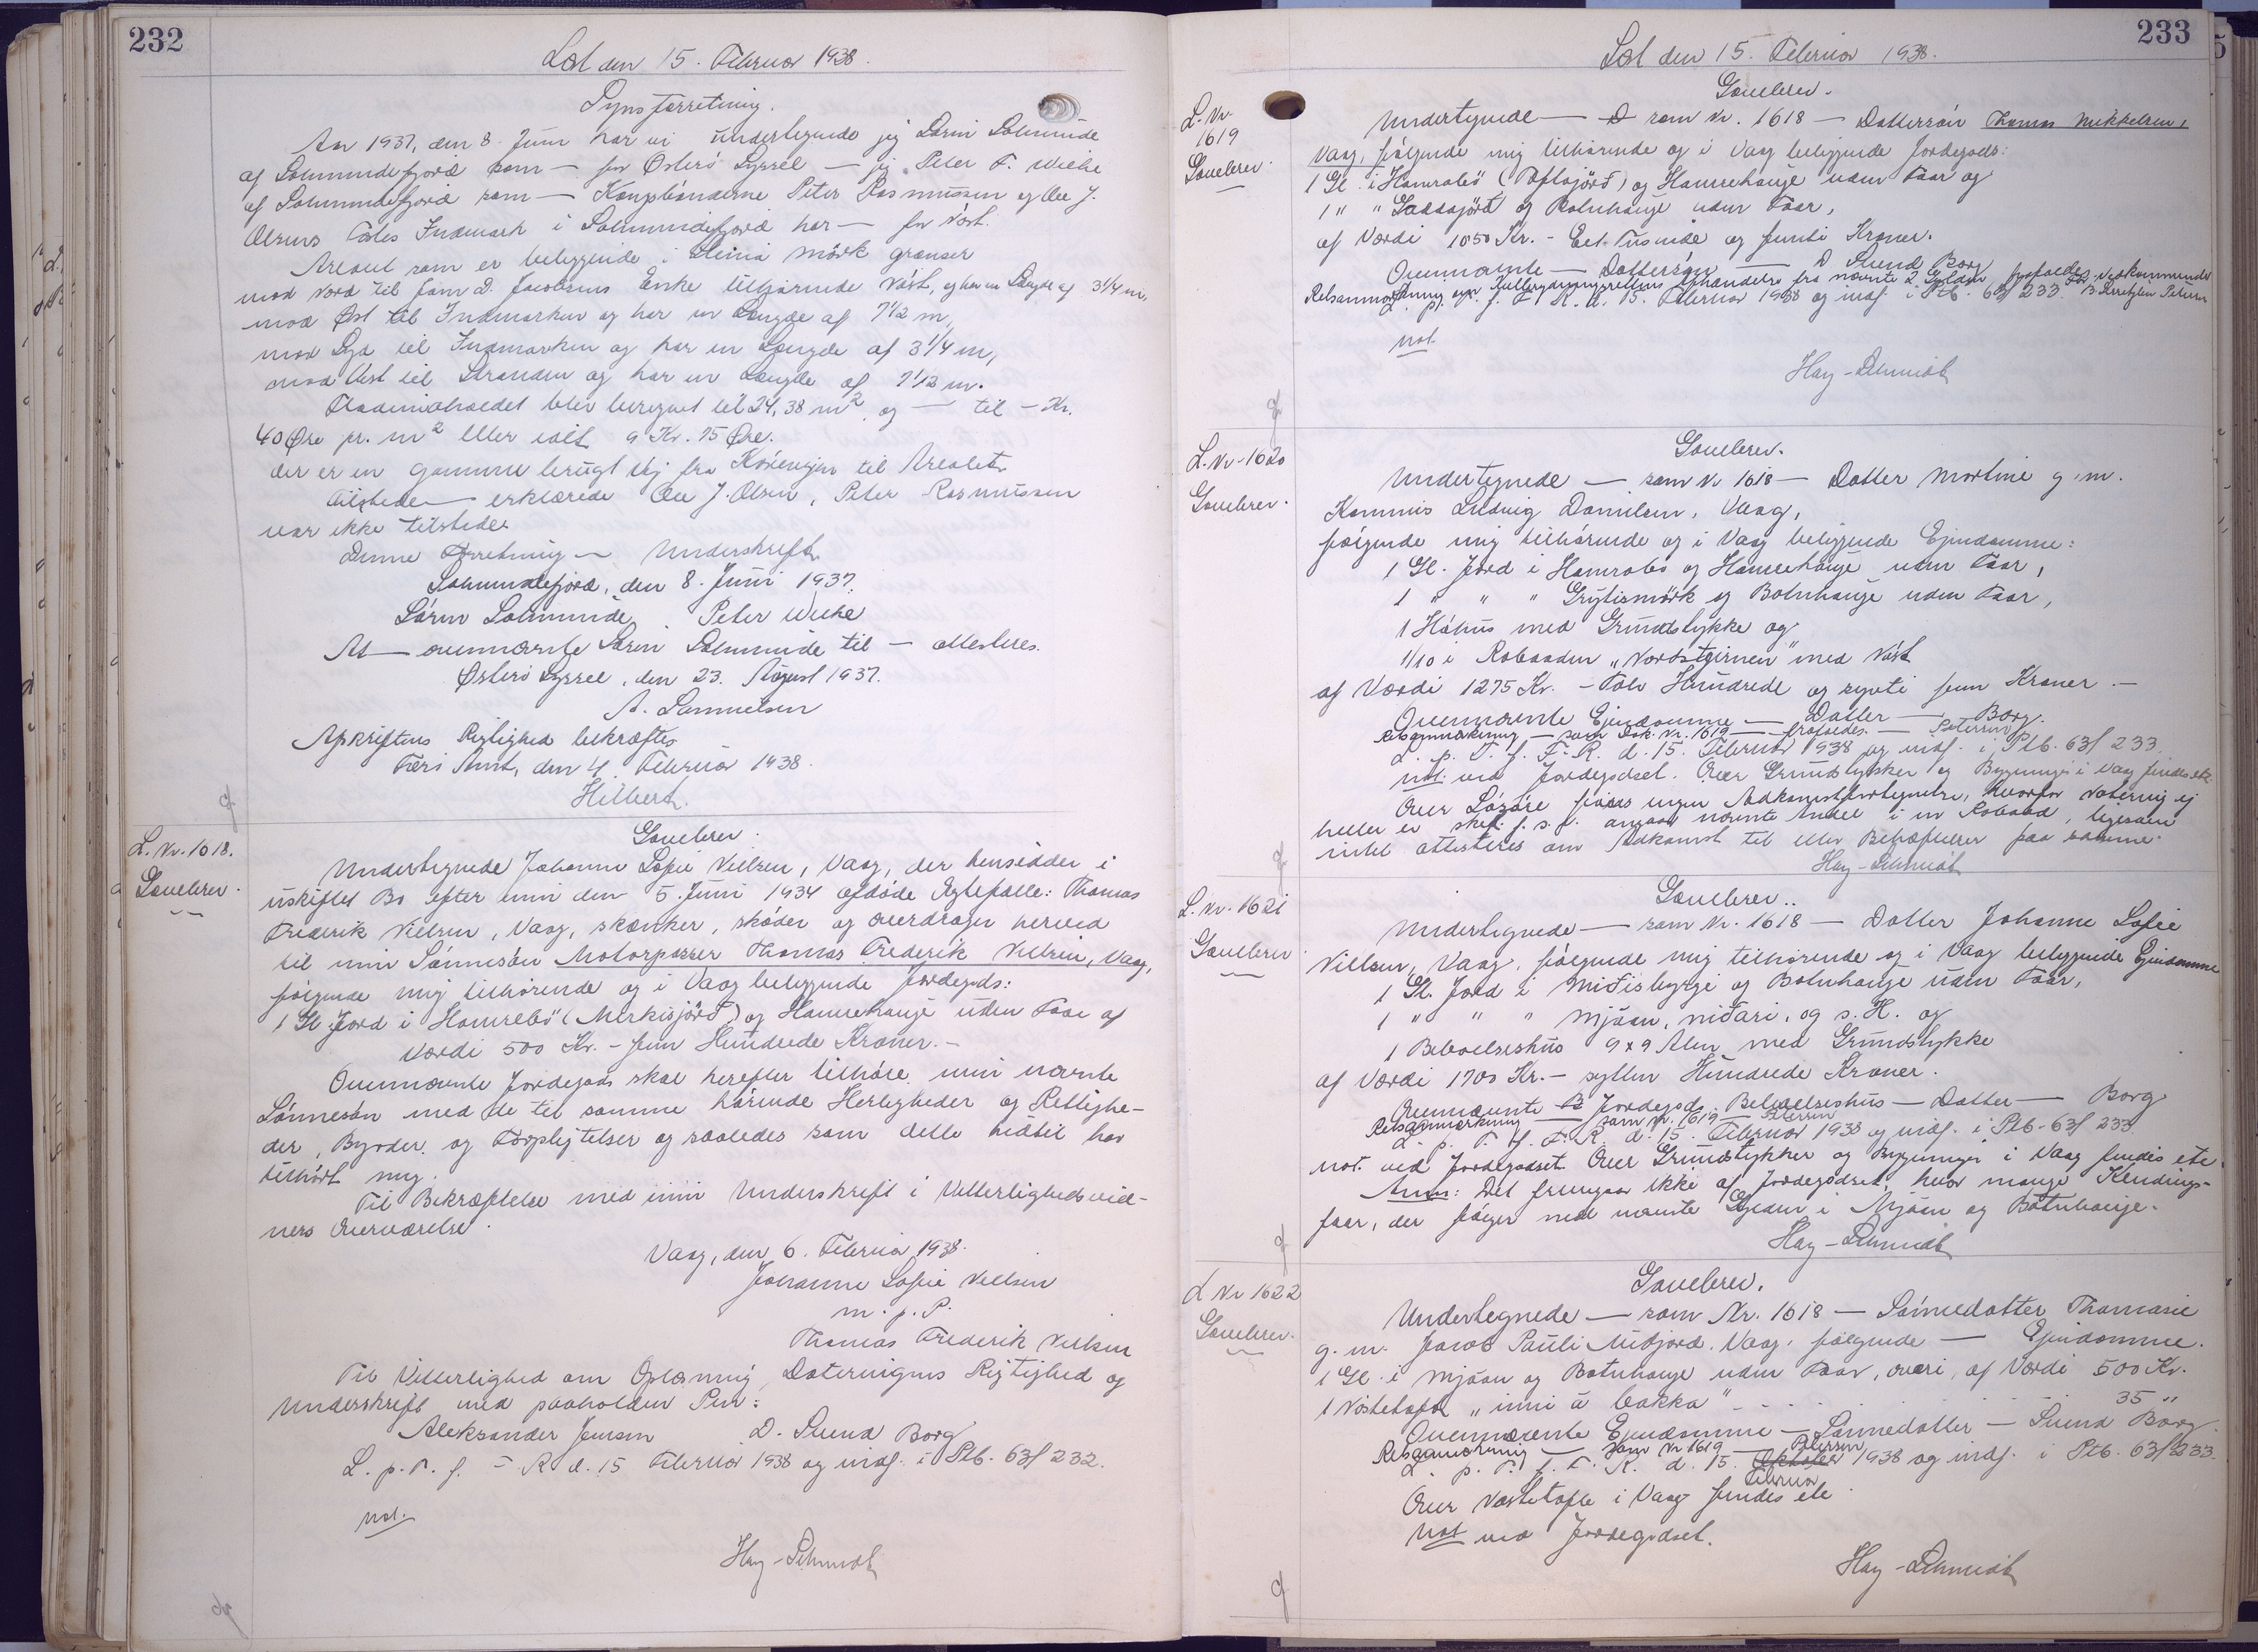 232
Læst den 15. Februar 1938.
Synsforretning.
Aar 1937, den 8. Juni har vi undertegnede jeg Sørin Solmunde
af Solmundefjord som — for Østerø Syssel — jeg Peter F. Wiehe
af Solmundefjord som — Kongsbønderne Peter Rasmussen og Ole J.
Olsens Fæstes Indmark i Solmundefjord har — for Nóst.
Arealet som er beliggende i Heima mørk grænser
mod Nord til Joen D. Jacobsens Enke tilhørende Nóst, og har en Længde af 3 1/4 m,
mod Øst til Indmarken og har en Længde af 7 1/2 m,
mod Syd til Indmarken og har en Længde af 3 1/4 m,
mod Vest til Stranden og har en Længde af 7 1/2 m.
Fladeindholdet blev beregnet til 24,38 m² og — til — Kr.
40 Øre pr. m² eller ialt 9 Kr. 75 Øre.
der er en gammel brugt Vej fra Kørevejen til Arealet.
Tilstede — erklærede Ole J. Olsen, Peter Rasmussen
var ikke tilstede.
Denne Forretning — Underskrift.
Solmundefjord, den 8. Juni 1937.
Sørin Solmunde Peter Wiehe
At — ovennævnte Sørin Solmunde til — attesteres.
Østerø Syssel, den 23. August 1937.
A. Samuelsen
Afskriftens Rigtighed bekræftes
Færø Amt, den 4. Februar 1938.
Hilbert.
L. Nr. 1618.
Gavebrev.
Gavebrev.
Undertegnede Johanne Sofie Vilsen, Vaag, der hensidder i
uskiftet Bo efter min den 5. Juni 1934 afdøde Ægtefælle: Thomas
Frederik Vilsen, Vaag, skænker, skøder og overdrager herved
til min Sønnesøn Motorpasser Thomas Frederik Vilsen, Vaag,
følgende mig tilhørende og i Vaag beliggende Jordegods:
1 Gl. Jord i Hamrebø (Merkisjørð) og Hamrehauge uden Faar af
Værdi 500 Kr. – fem Hundrede Kroner. –
Ovennævnte Jordegods skal herefter tilhøre min nævnte
Sønnesøn med de til samme hørende Herligheder og Rettighe-
der, Byrder og Forpligtelser og saaledes som dette hidtil har
tilhørt mig.
Til Bekræftelse med min Underskrift i Vitterlighedsvid-
ners Overværelse.
Vaag, den 6. Februar 1938.
Johanne Sofie Vilsen
m. f. P.
Thomas Frederik Vilsen
Til Vitterlighed om Oplæsning, Dateringens Rigtighed og
Underskrift med paaholden Pen:
Aleksander Jensen D. Svend Borg
L. p. T. f. F. R. d. 15 Februar 1938 og indf. i Ptb. 63f 232.
not.
Hay-Schmidt
233
Læst den 15. Februar 1938.
L. Nr.
1619
Gavebrev.
Gavebrev.
Undertegnede — som Nr. 1618 — Dattersøn Thomas Mikkelsen,
Vaag, følgende mig tilhørende og i Vaag beliggende Jordegods:
1 Gl. i Hamrabø (Oftajørð) og Hamrehauge uden Faar og
1 " " Gaddajørð og Botnhauge uden Faar,
af Værdi 1050 Kr. – Eet Tusinde og femti Kroner.
Ovennævnte — Dattersøn — D Svend Borg
Retsanmærkning om Rullegangsrettens Afhændelse fra nævnte 2 Gylden frafaldes
L. p. T. f. F. R. d. 15. Februar 1938 og indf. i Ptb. 63f 233.
not.
Hay-Schmidt
L. Nr. 1620
Gavebrev.
Gavebrev.
Undertegnede — som Nr 1618 — Datter Martine g. m.
Kommis Ludvig Danielsen, Vaag,
følgende mig tilhørende og i Vaag beliggende Ejendomme:
1 Gl. Jord i Hamrabø og Hamrehauge uden Faar,
1 " " " Grytismørk og Botnhauge uden Faar,
1 Høhus med Grundstykke og
1/10 i Robaaden „Norðstjernen" med Nóst
af Værdi 1275 Kr. – Tolv Hundrede og syvti fem Kroner. –
Ovennævnte Ejendomme — Datter — Borg.
Retsanmærkning — som Dok. Nr. 1619 — frafaldes. — Petersen
L. p. T. f. F. R. d. 15. Februar 1938 og indf. i Ptb. 63f 233.
not. ved Jordegodset. Over Grundstykker og Bygninger i Vaag findes etc.
Over Løsøre føres ingen Adkomstfortegnelse, hvorfor Notering ej
heller er sket f. s. v. angaar nævnte Andel i en Robaad, ligesom
intet attesteres om Adkomst til eller Behæftelser paa samme.
Hay-Schmidt
L. Nr. 1621
Gavebrev
Gavebrev.
Undertegnede — som Nr. 1618 — Datter Johanne Sofie
Vilsen, Vaag, følgende mig tilhørende og i Vaag beliggende Ejendomme
1 Gl. Jord i Miðisbygje og Botnhauge uden Faar,
1 " " " Mjáan, niðari, og s. H. og
1 Beboelseshus 9 x 9 Alen med Grundstykke
af Værdi 1700 Kr. – sytten Hundrede Kroner.
Ovennævnte Jordegods, Beboelseshus — Datter — Borg
Retsanmærkning — som Nr. 1619 — Petersen
L. p. T. f. F. R. d. 15. Februar 1938 og indf. i Ptb. 63f 233
not. ved Jordegodset. Over Grundstykker og Bygninger i Vaag findes etc.
Anm: Det fremgaar ikke af Jordegodset, hvor mange Kendings-
faar, der følger med nævnte Gylden i Mjáan og Botnhauge.
Hay-Schmidt
L Nr 1622
Gavebrev.
Gavebrev.
Undertegnede — som Nr. 1618 — Sønnedatter Thomasie
g. m. Jacob Pauli Miðjord, Vaag, følgende — Ejendomme.
1 Gl. i Mjáan og Botnhauge uden Faar, ovari, af Værdi 500 Kr.
1 Nóstetoft „inni á bakka" - - - - 35 "
Ovennævnte Ejendomme — Sønnedatter — Svend Borg
Retsanmærkning — som Nr 1619 — Petersen
L. p. T. f. F. R. d. 15. Oktober Februar 1938 og indf. i Ptb. 63f 233.
Over Nóstetofte i Vaag findes etc.
Not ved Jordegodset.
Hay-Schmidt